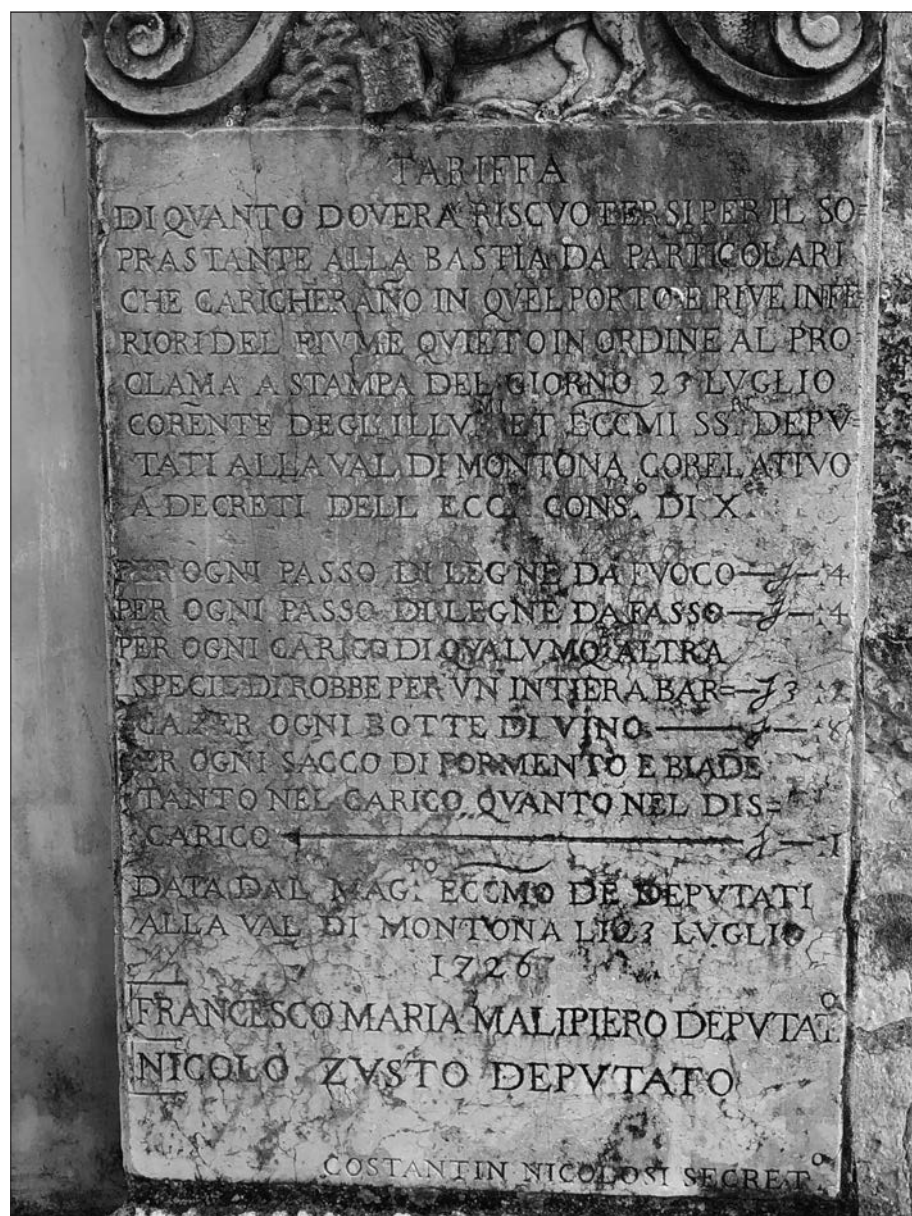 TARIFFA
DI QVANTO DOVERA RISCVOTERSI PER IL SO=
PRASTANTE ALLA BASTIA DA PARTICOLARI
CHE CARICHERAÑO IN QVEL PORTO E RIVE INFE=
RIORI DEL FIVME QVIETO IN ORDINE AL PRO=
CLAMA A STAMPA DEL GIORNO 23 LVGLIO
CORENTE DEGL ILLV.MI ET ECCMI SS.RI DEPV=
TATI ALLA VAL DI MONTONA CORELATIVO
A DECRETI DELL ECC. CONS.O DI X
PER OGNI PASSO DI LEGNE DA FVOCO — J — :4
PER OGNI PASSO DI LEGNE DA FASSO — J — :4
PER OGNI CARICO DI QVALVMQ: ALTRA
SPECIE DI ROBBE PER VN INTIERA BAR= — J 3 :2
CA PER OGNI BOTTE DI VINO — J — :8
PER OGNI SACCO DI FORMENTO E BIADE
TANTO NEL CARICO QVANTO NEL DIS=
CARICO — J — :1
DATA DAL MAG.TO ECCMO DE DEPVTATI
ALLA VAL DI MONTONA LI 23 LVGLIO
1726
FRANCESCO MARIA MALIPIERO DEPVTAT.O
NICOLO ZVSTO DEPVTATO
COSTANTIN NICOLOSI SECRET.O